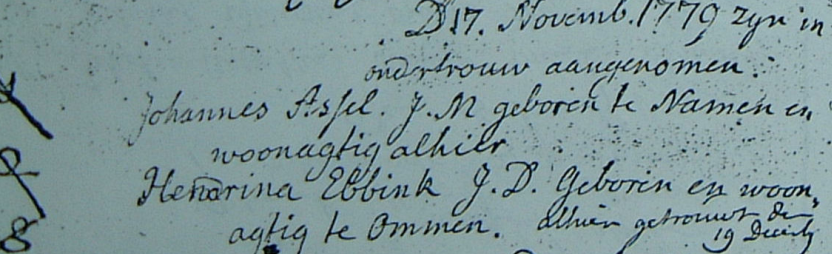 D 17. Novemb. 1779 zyn in
ondertrouw aangenomen.
Johannes Assel. J. M geboren te Namen en
woonagtig alhier
Hendrina Ebbink J. D. Geboren en woon,
agtig te Ommen. alhier getrouwt den
19 Decemb